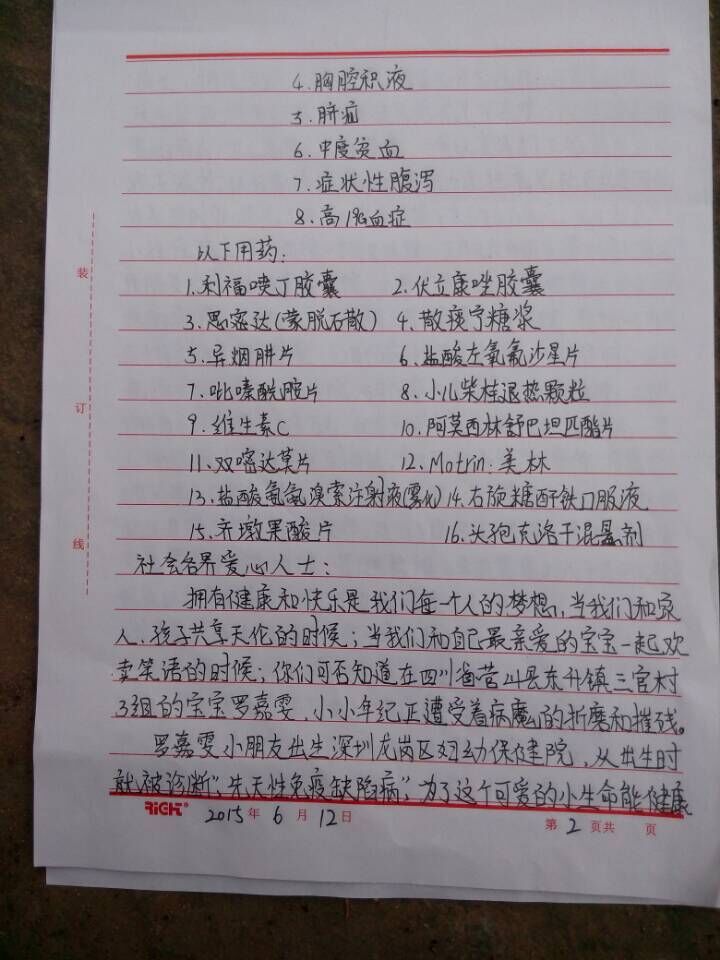 4.胸腔积液
5.脐疝
6.中度贫血
7.症状性腹泻
8.高1gG血症
以下用药:
1.利福喷丁胶囊 2.伏立康唑胶囊
3.思密达(蒙脱石散) 4.散痰宁糖浆
5.异烟肼片 6.盐酸左氧氟沙星片
7.吡嗪酰胺片 8.小儿柴桂退热颗粒
9.维生素C 10.阿莫西林舒巴坦匹酯片
11.双嘧达莫片 12.Motrin:美林
13.盐酸氨氨溴索注射液(雾化) 14.右旋糖酐铁口服液
15.齐墩果酸片 16.头孢克洛干混悬剂
社会各界爱心人士:
拥有健康和快乐是我们每一个人的梦想,当我们和家
人、孩子共享天伦的时候;当我们和自己最亲爱的宝宝一起欢
声笑语的时候;你们可否知道在四川省营山县东升镇三官村
3组的宝宝罗嘉雯,小小年纪正遭受着病魔的折磨和摧残。
罗嘉雯小朋友出生深圳龙岗区妇幼保健院,从出生时
就被诊断“先天性免疫缺陷病”,为了这个可爱的小生命能健康
装
订
线
RICH® 2015年6月12日 第2页共 页